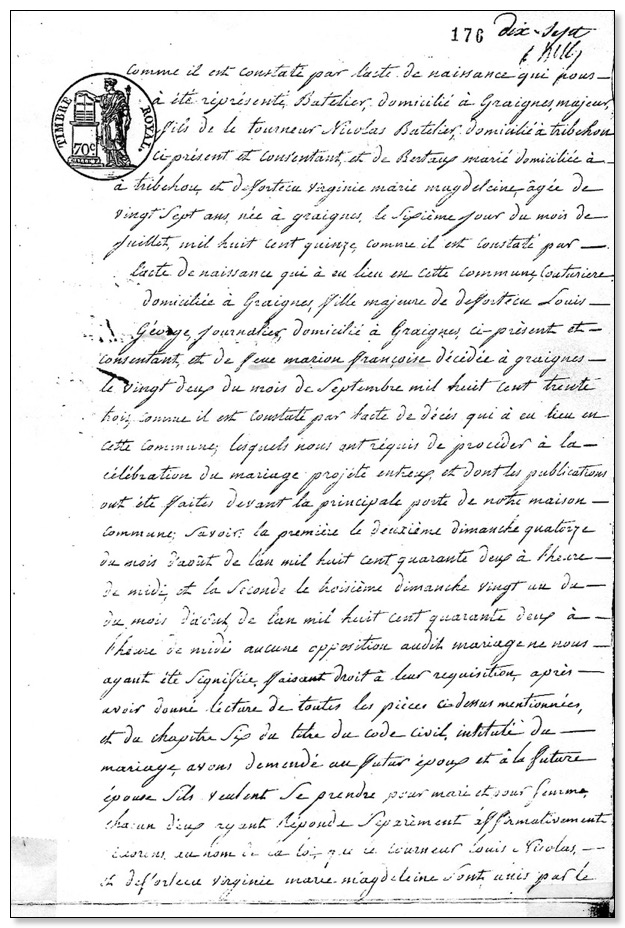 176 dix-sept
TIMBRE ROYAL
70c
Comme il est constaté par l'acte de naissance qui nous
à été réprésenté, Batelier, domicilié à Graignes, majeur,
fils de le tourneur Nicolas Batelier, domicilié à tribehou
ci-présent et consentant, et de Bertaux marié domiciliée à
à tribehou, et deffortecu virginie marie magdeleine, âgée de
vingt Sept ans, née à graignes, le Sixième jour du mois de
juillet, mil huit cent quinze, comme il est constaté par
l'acte de naissance qui à eu lieu en cette commune, Couturiere
domiciliée à Graignes, fille majeure de deffortecu Louis
Géorge, journalier, domicilié à Graignes, ci-présent et
consentant, et de feue marion françoise décédée à graignes
le vingt deux du mois de Septembre mil huit cent trente
trois, comme il est constaté par l'acte de décés qui à eu lieu en
cette commune; lesquels nous ont réquis de procéder à la
célébration du mariage projété entreux, et dont les publications
ont été faites devant la principale porte de notre maison
commune; Savoir: la première le deuxième dimanche quatorze
du mois d'août de l'an mil huit cent quarante deux à l'heure
de midi, et la Seconde le troisième dimanche vingt un du
du mois d'août, de l'an mil huit cent quarante deux à
l'heure de midi, aucune opposition audit mariage ne nous
ayant été Signifiée, faisant droit à leur requisition, après
avoir donné lecture de toutes les pièces ci-dessus mentionnées,
et du chapitre Six du titre du code civil, intitulé du
mariage, avons demandé au futur époux et à la future
épouse S'ils veulent Se prendre pour mari et pour femme,
chacun d'eux ayant Réponde Séparèment affirmativement
déclarons, au nom de la loi, que le tourneur Louis Nicolas,
et deffortecu virginie marie magdeleine Sont unis par le